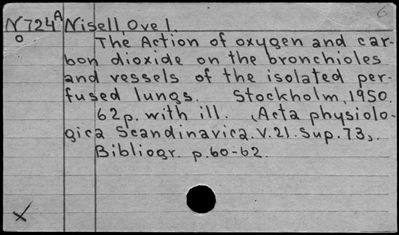 6
N724A Nisell, Ove I.
o The Action of oxygen and car-
bon dioxide on the bronchioles
and vessels of the isolated per-
fused lungs. Stockholm, 1950.
62p. with ill. (Acta physiolo-
gica Scandinavica. V.21. Sup. 73).
Bibliogr. p.60-62.
x